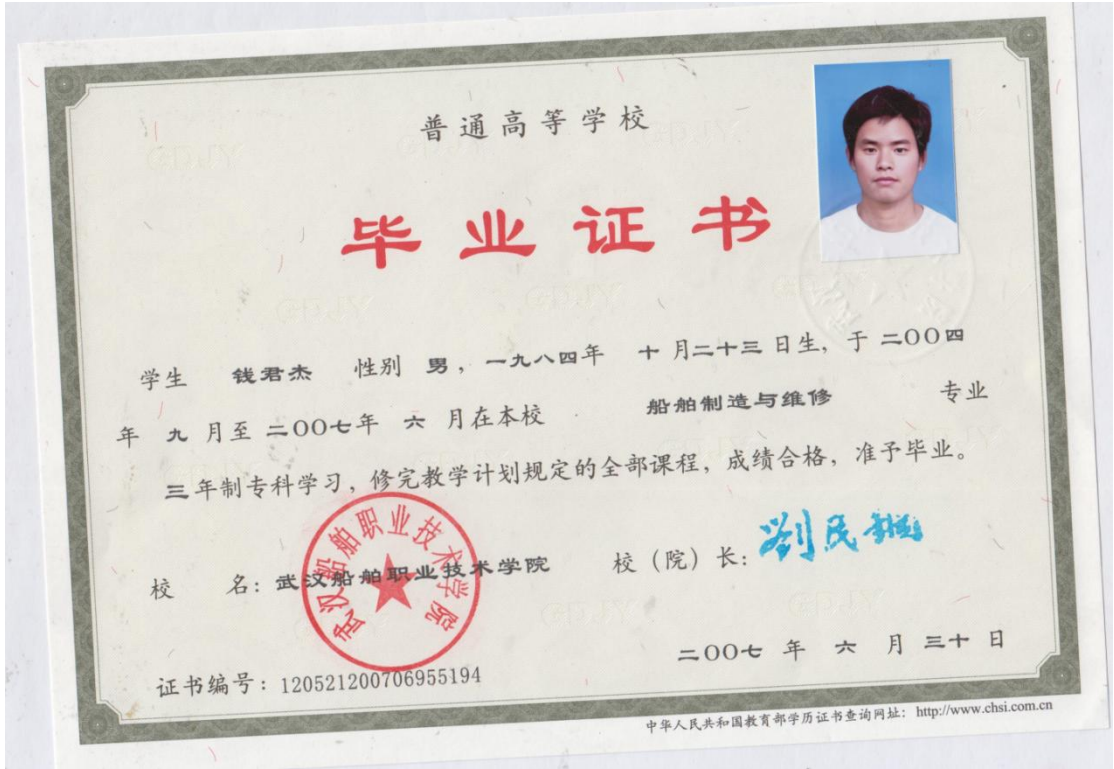 普通高等学校
毕业证书
学生 钱君杰 性别 男，一九八四年 十月二十三日生，于二〇〇四
年 九 月至 二〇〇七年 六 月在本校 船舶制造与维修 专业
三年制专科学习，修完教学计划规定的全部课程，成绩合格，准予毕业。
武汉船舶职业技术学院
校 名：武汉船舶职业技术学院 校（院）长：
二〇〇七 年 六 月 三十 日
证书编号：120521200706955194
中华人民共和国教育部学历证书查询网址：http://www.chsi.com.cn